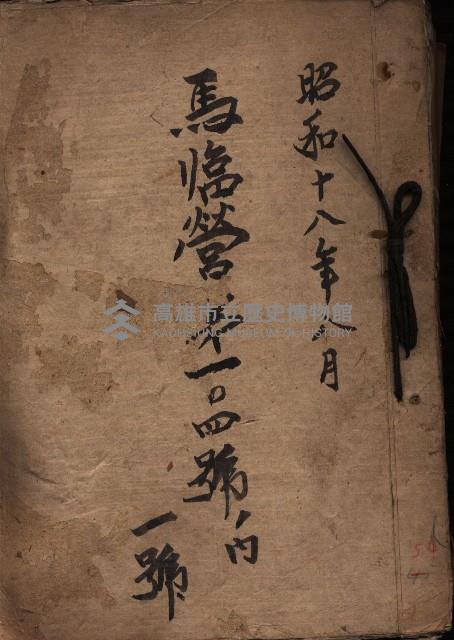 昭和十八年八月
馬臨營第一〇四號ノ内
一號
高雄市立歷史博物館
KAOHSIUNG MUSEUM OF HISTORY
54